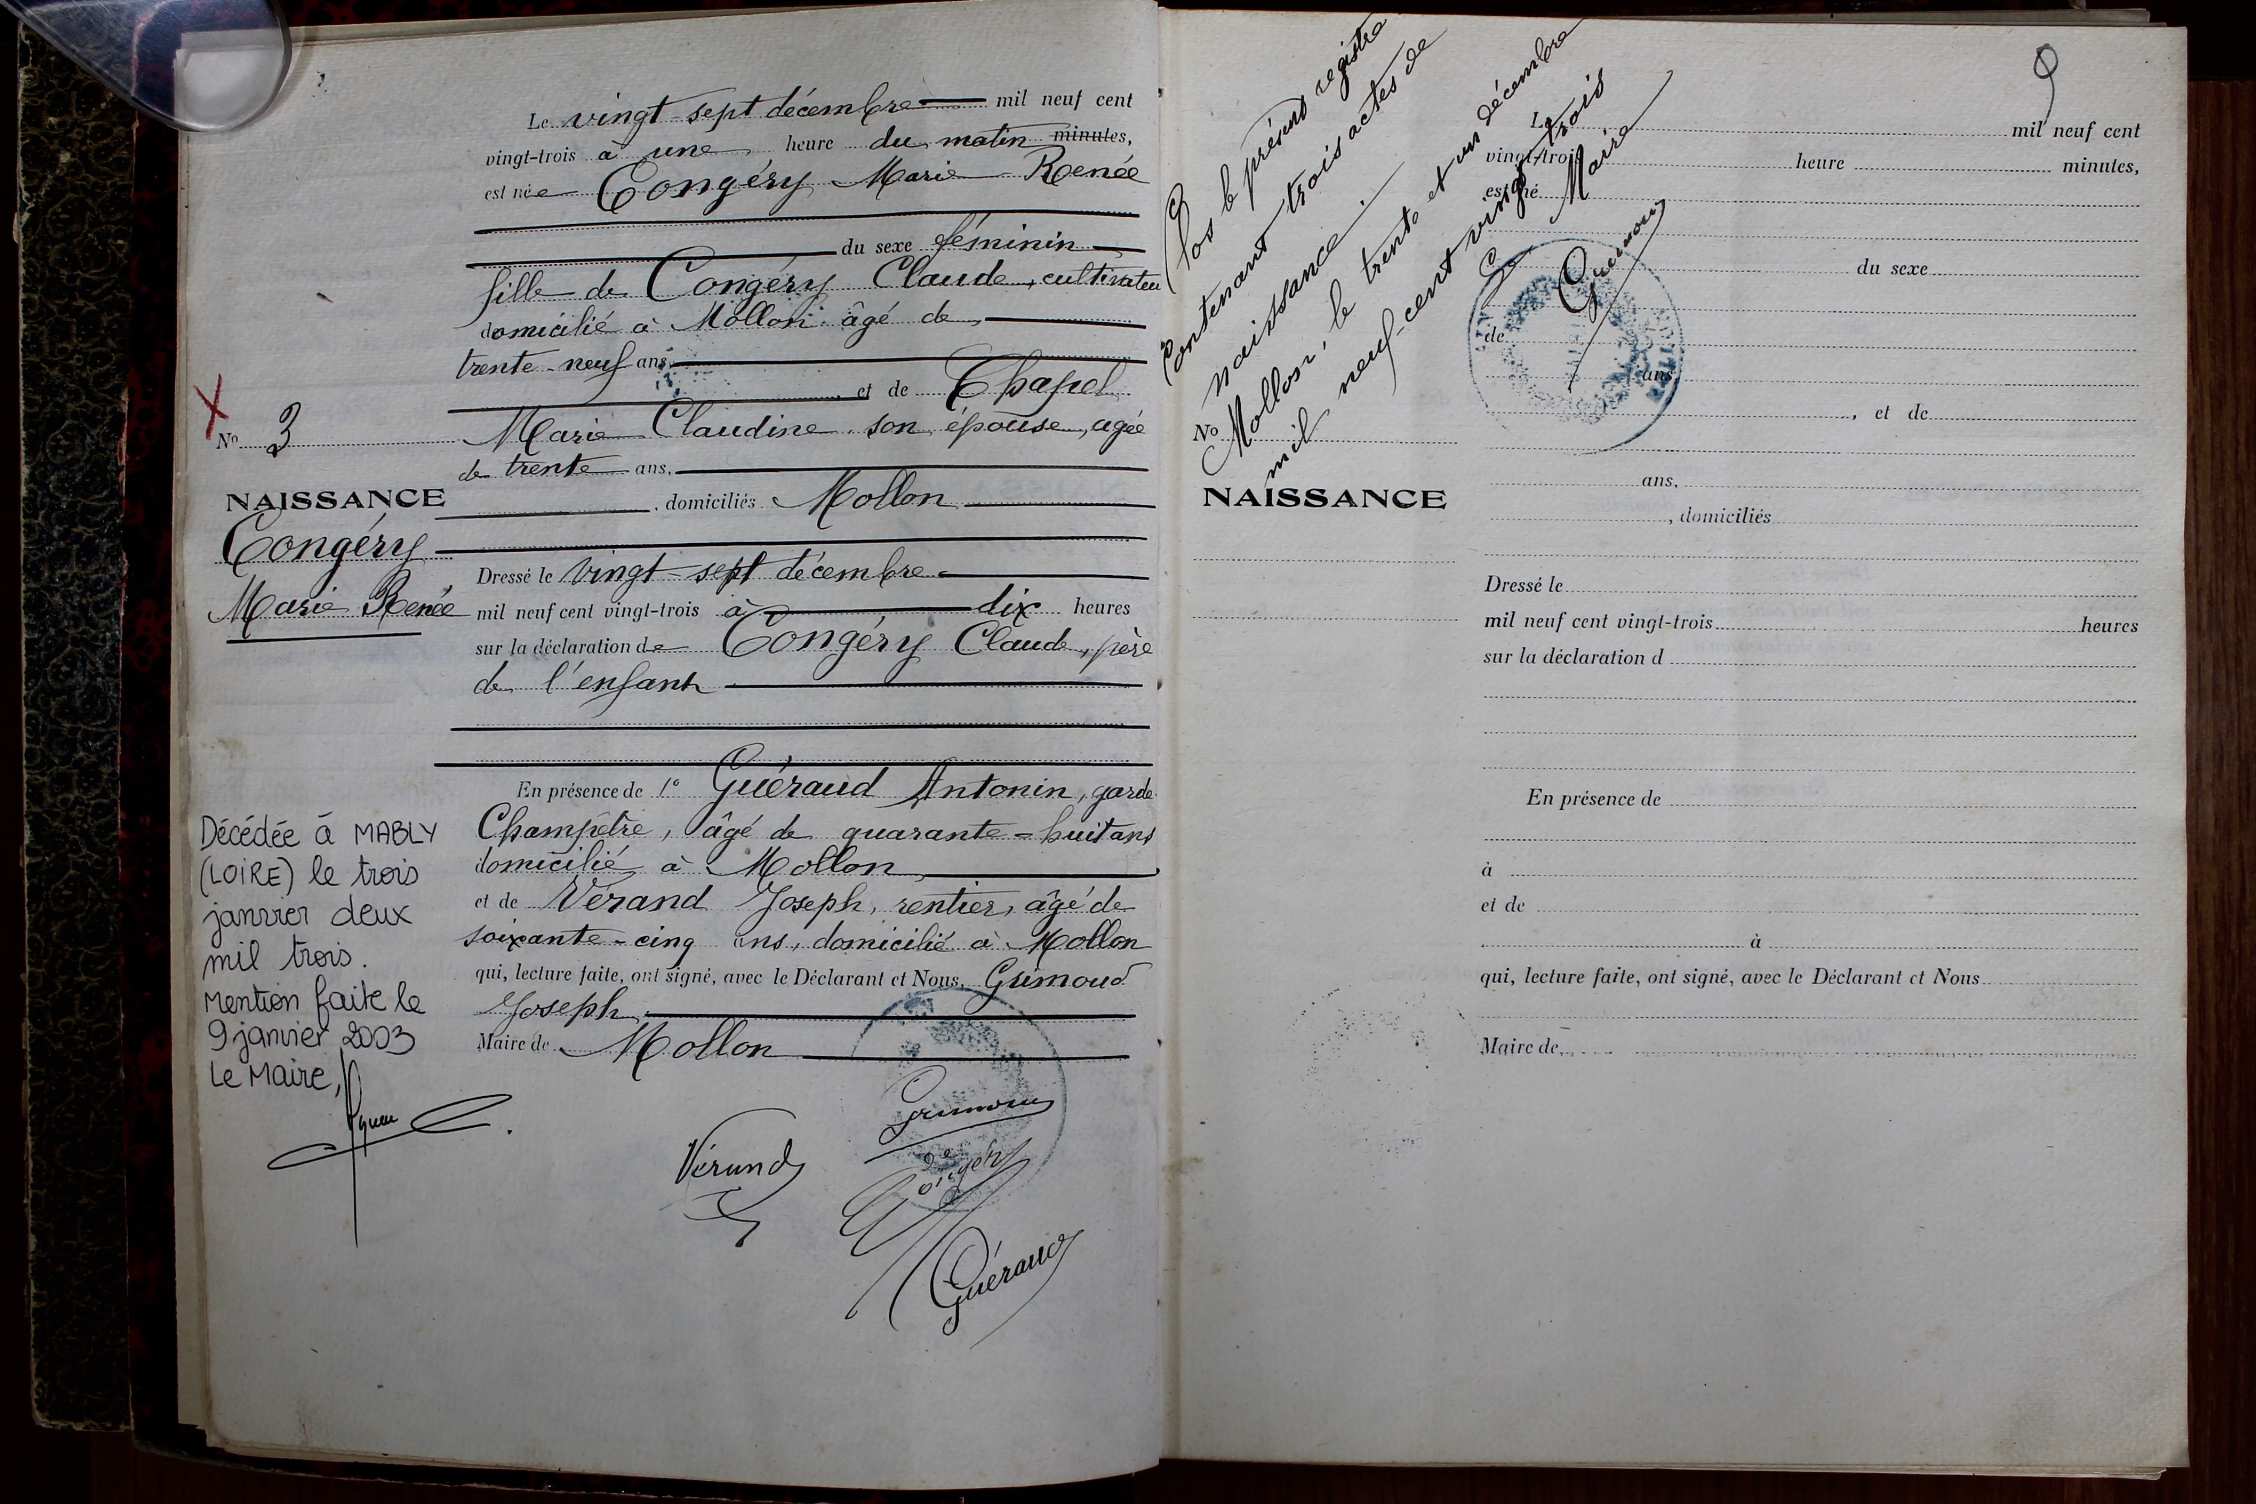 Le vingt-sept décembre mil neuf cent
vingt-trois à une heure du matin minutes,
est née Congéry Marie Renée
du sexe féminin
fille de Congéry Claude, cultivateu
domicilié à Mollon âgé de
trente-neuf ans,
, et de Chapel
Marie Claudine son épouse, agée
de trente ans,
, domiciliés Mollon
Dressé le vingt-sept décembre
mil neuf cent vingt-trois à dix heures
sur la déclaration de Congéry Claude, père
de l'enfant
En présence de 1° Guéraud Antonin, garde
Champêtre, âgé de quarante-huit ans
domicilié à Mollon,
et de Vérand Joseph, rentier, âgé de
soixante-cinq ans, domicilié à Mollon
qui, lecture faite, ont signé, avec le Déclarant et Nous, Grimoud
Joseph,
Maire de Mollon
Vérand
Guéraud
No 3
NAISSANCE
Congéry
Marie Renée
Décédée à MABLY
(LOIRE) le trois
janvier deux
mil trois.
Mention faite le
9 janvier 2003
Le Maire,
Clos le présent registre
Contenant trois actes de
naissance
Mollon, le trente et un décembre
mil neuf-cent vingt-trois
Le Maire
9
Le mil neuf cent
vingt-trois heure minutes,
est né
du sexe
de
ans,
, et de
ans,
, domiciliés
Dressé le
mil neuf cent vingt-trois heures
sur la déclaration d
En présence de
à
et de
à
qui, lecture faite, ont signé, avec le Déclarant et Nous
Maire de
No
NAISSANCE